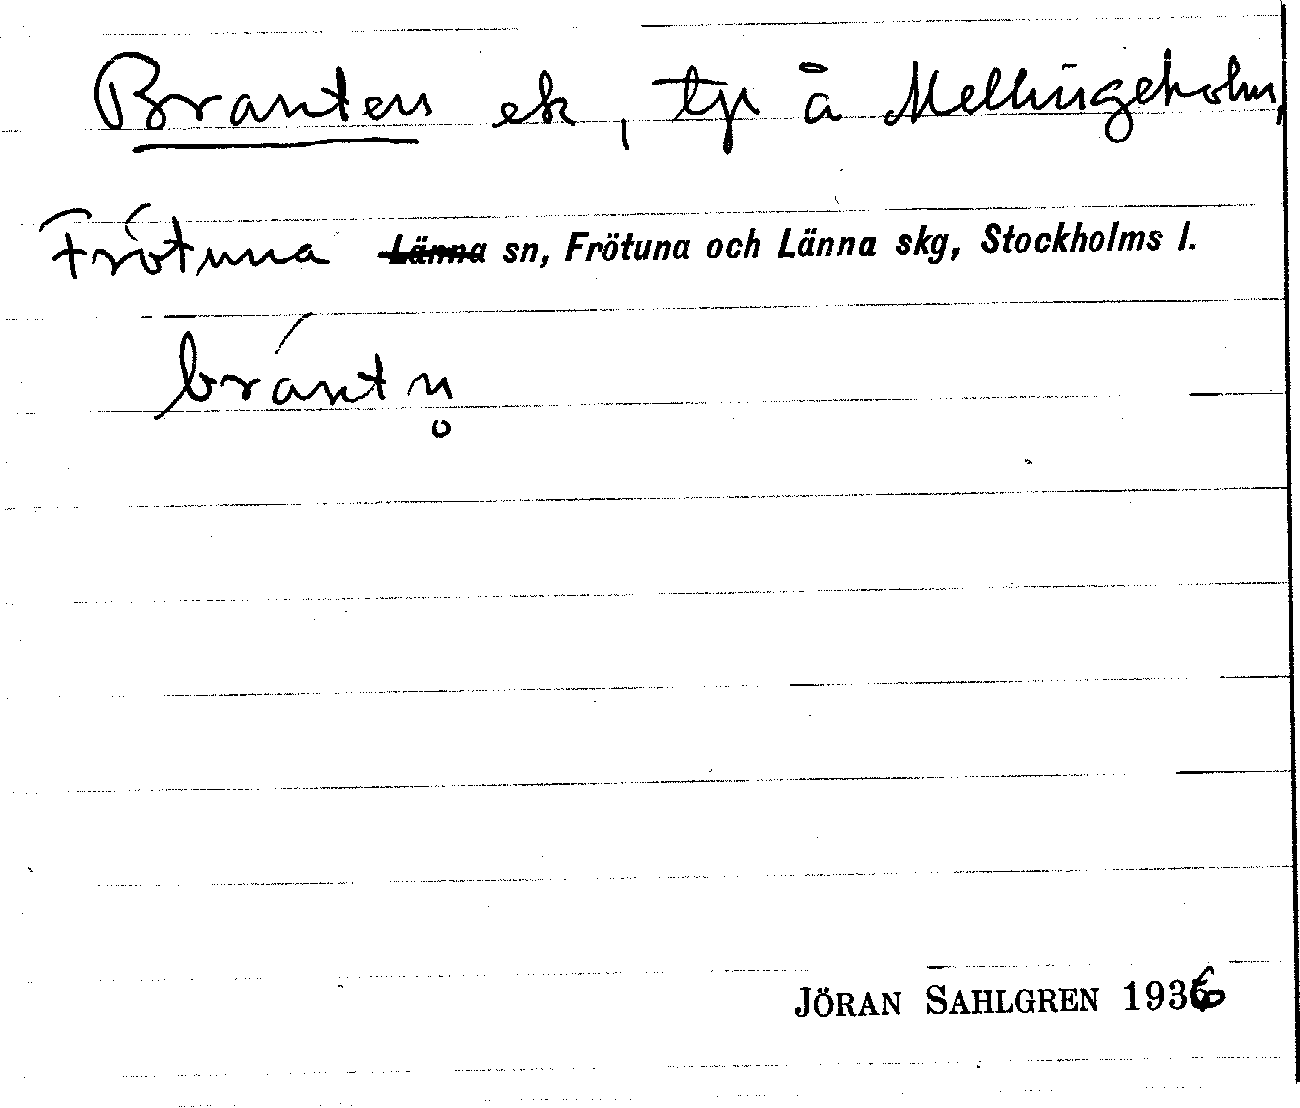 Branten ek, tp å Mellingeholm,
Frötuna Länna sn, Frötuna och Länna skg, Stockholms l.
brántn̥
JÖRAN SAHLGREN 1936